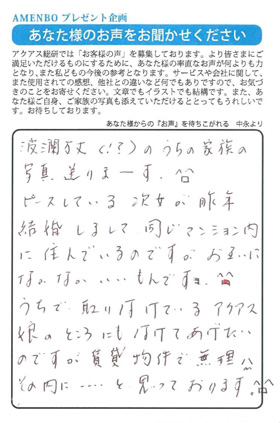 AMENBO プレゼント企画
あなた様のお声をお聞かせください
アクアス総研では「お客様の声」を募集しております。より皆さまにご
満足いただけるものにするために、あなた様の率直なお声が何よりも力
となり、また私どもの今後の参考となります。サービスや会社に関して、
また使用されての感想、他社との違いなど何でもありですので、お気づ
きのことをお寄せください。文章でもイラストでも結構です。また、あな
た様ご自身、ご家族の写真も添えていただけるととってもうれしいで
す。お待ちしております。
あなた様からの『お声』を待ちこがれる 中永より
波瀾万丈(!?)のうちの家族の
写真送りまーす。^^
ピースしている次女が昨年
結婚しまして同じマンション内
に住んでいるのですがお互いに
なかなかいいもんですョ。^^
うちで取り付けているアクアス
娘のところにも付けてあげたい
のですが賃貸物件で無理
その内に……と思っております。^^